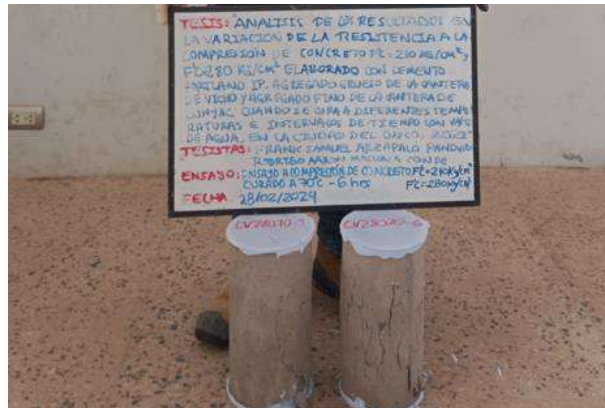 TESIS: "ANALISIS DE LOS RESULTADOS EN
LA VARIACION DE LA RESISTENCIA A LA
COMPRESION DE CONCRETO F'C=210 KG/CM², Y
F'C=280 KG/CM² ELABORADO CON CEMENTO
PORTLAND IP, AGREGADO GRUESO DE LA CANTERA
DE VICHO Y AGREGADO FINO DE LA CANTERA DE
CUANDO SE CURA A DIFERENTES TEMPE
RATURAS E INTERVALOS DE TIEMPO CON
DE AGUA, EN LA CIUDAD DEL CUSCO, 2023"
TESISTAS: FRANK SAMUEL ARZAPALO
RODRIGO AARON CONDE
ENSAYO: ENSAYO A COMPRESION DE CONCRETO F'C=210kg/cm²
CURADO A 70°C - 6 hrs F'C=280kg/cm²
FECHA: 28/02/2024